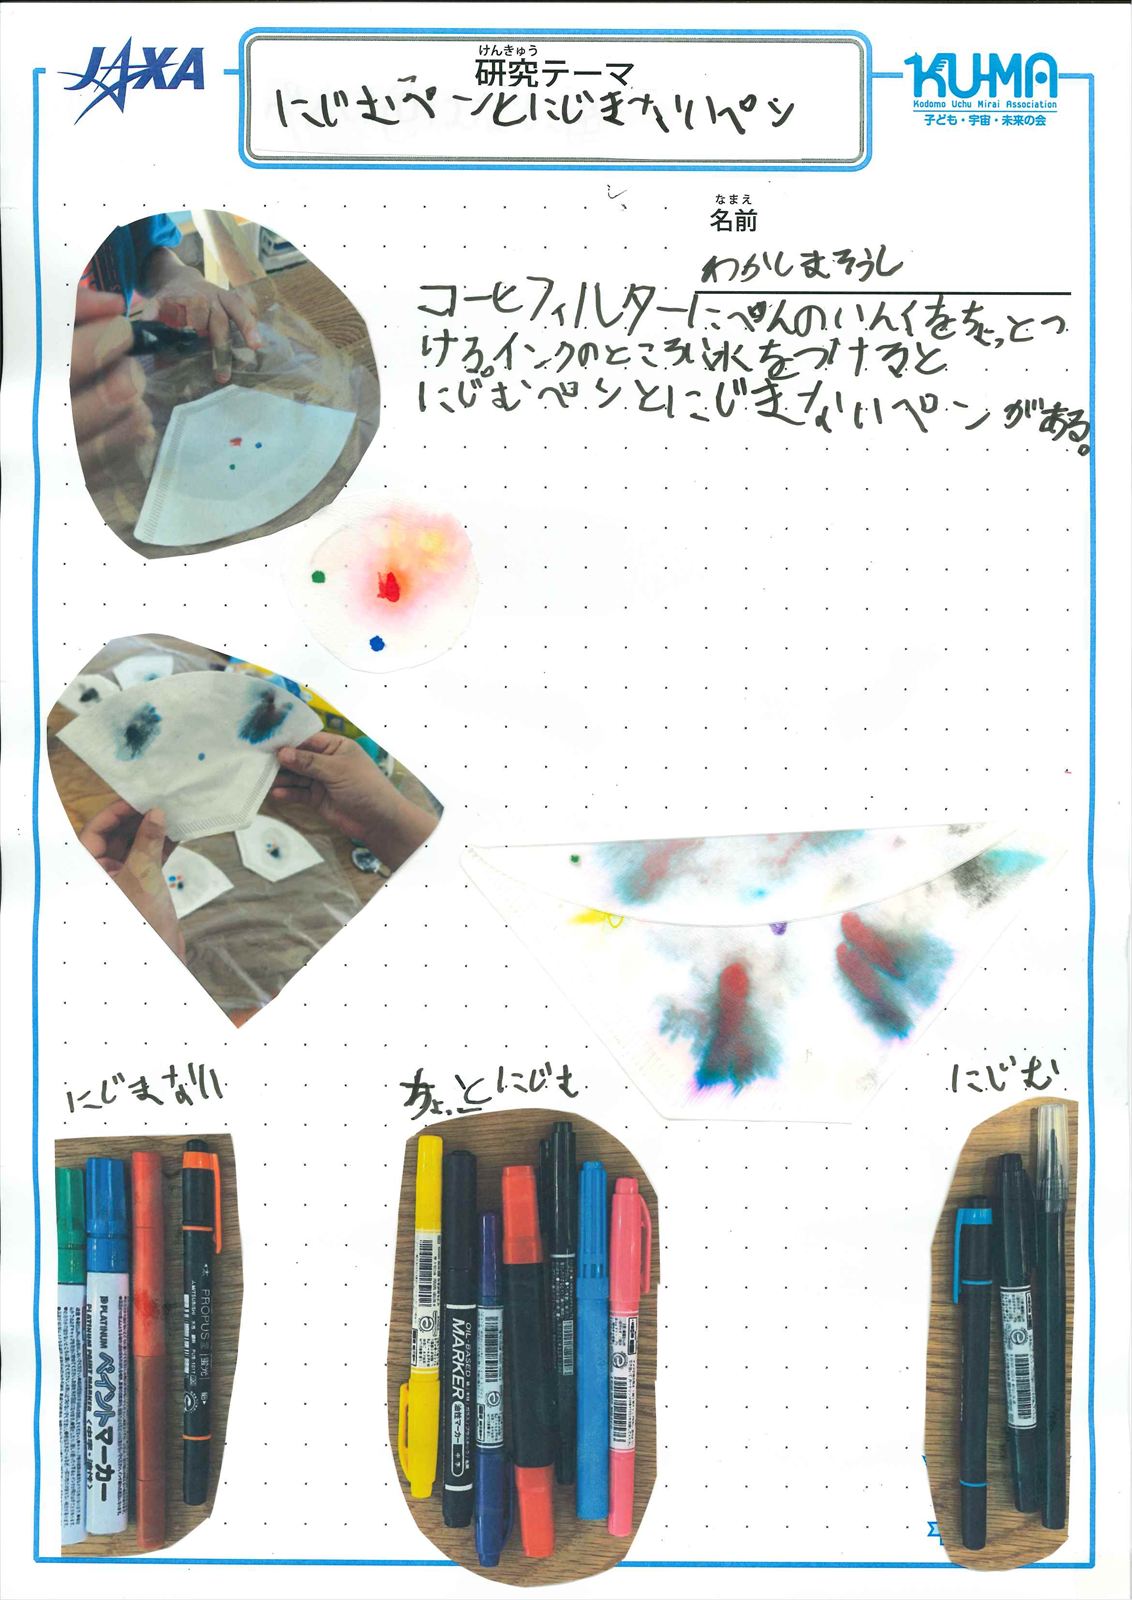 JAXA
けんきゅう
研究テーマ
にじむペンとにじまないペン
KU-MA
Kodomo Uchu Mirai Association
子ども・宇宙・未来の会
なまえ
名前
わかしまそうし
コーヒフィルターにぺんのいんくをちょっとつ
ける。インクのところに水をつけると
にじむペンとにじまないペンがある。
にじまない
ちょっとにじむ
にじむ
PLATINUM ペイントマーカー
PROPUS 2 蛍光
OIL-BASED
MARKER 油性マーカー